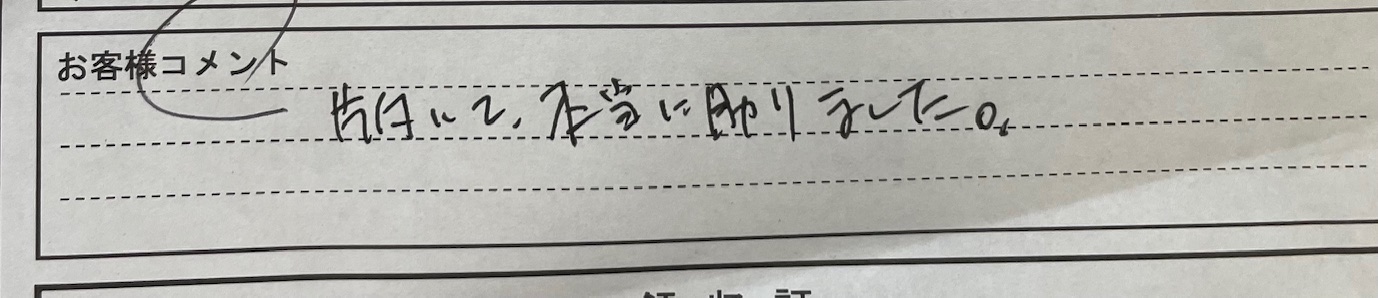 お客様コメント
片付いて、本当に助りました。